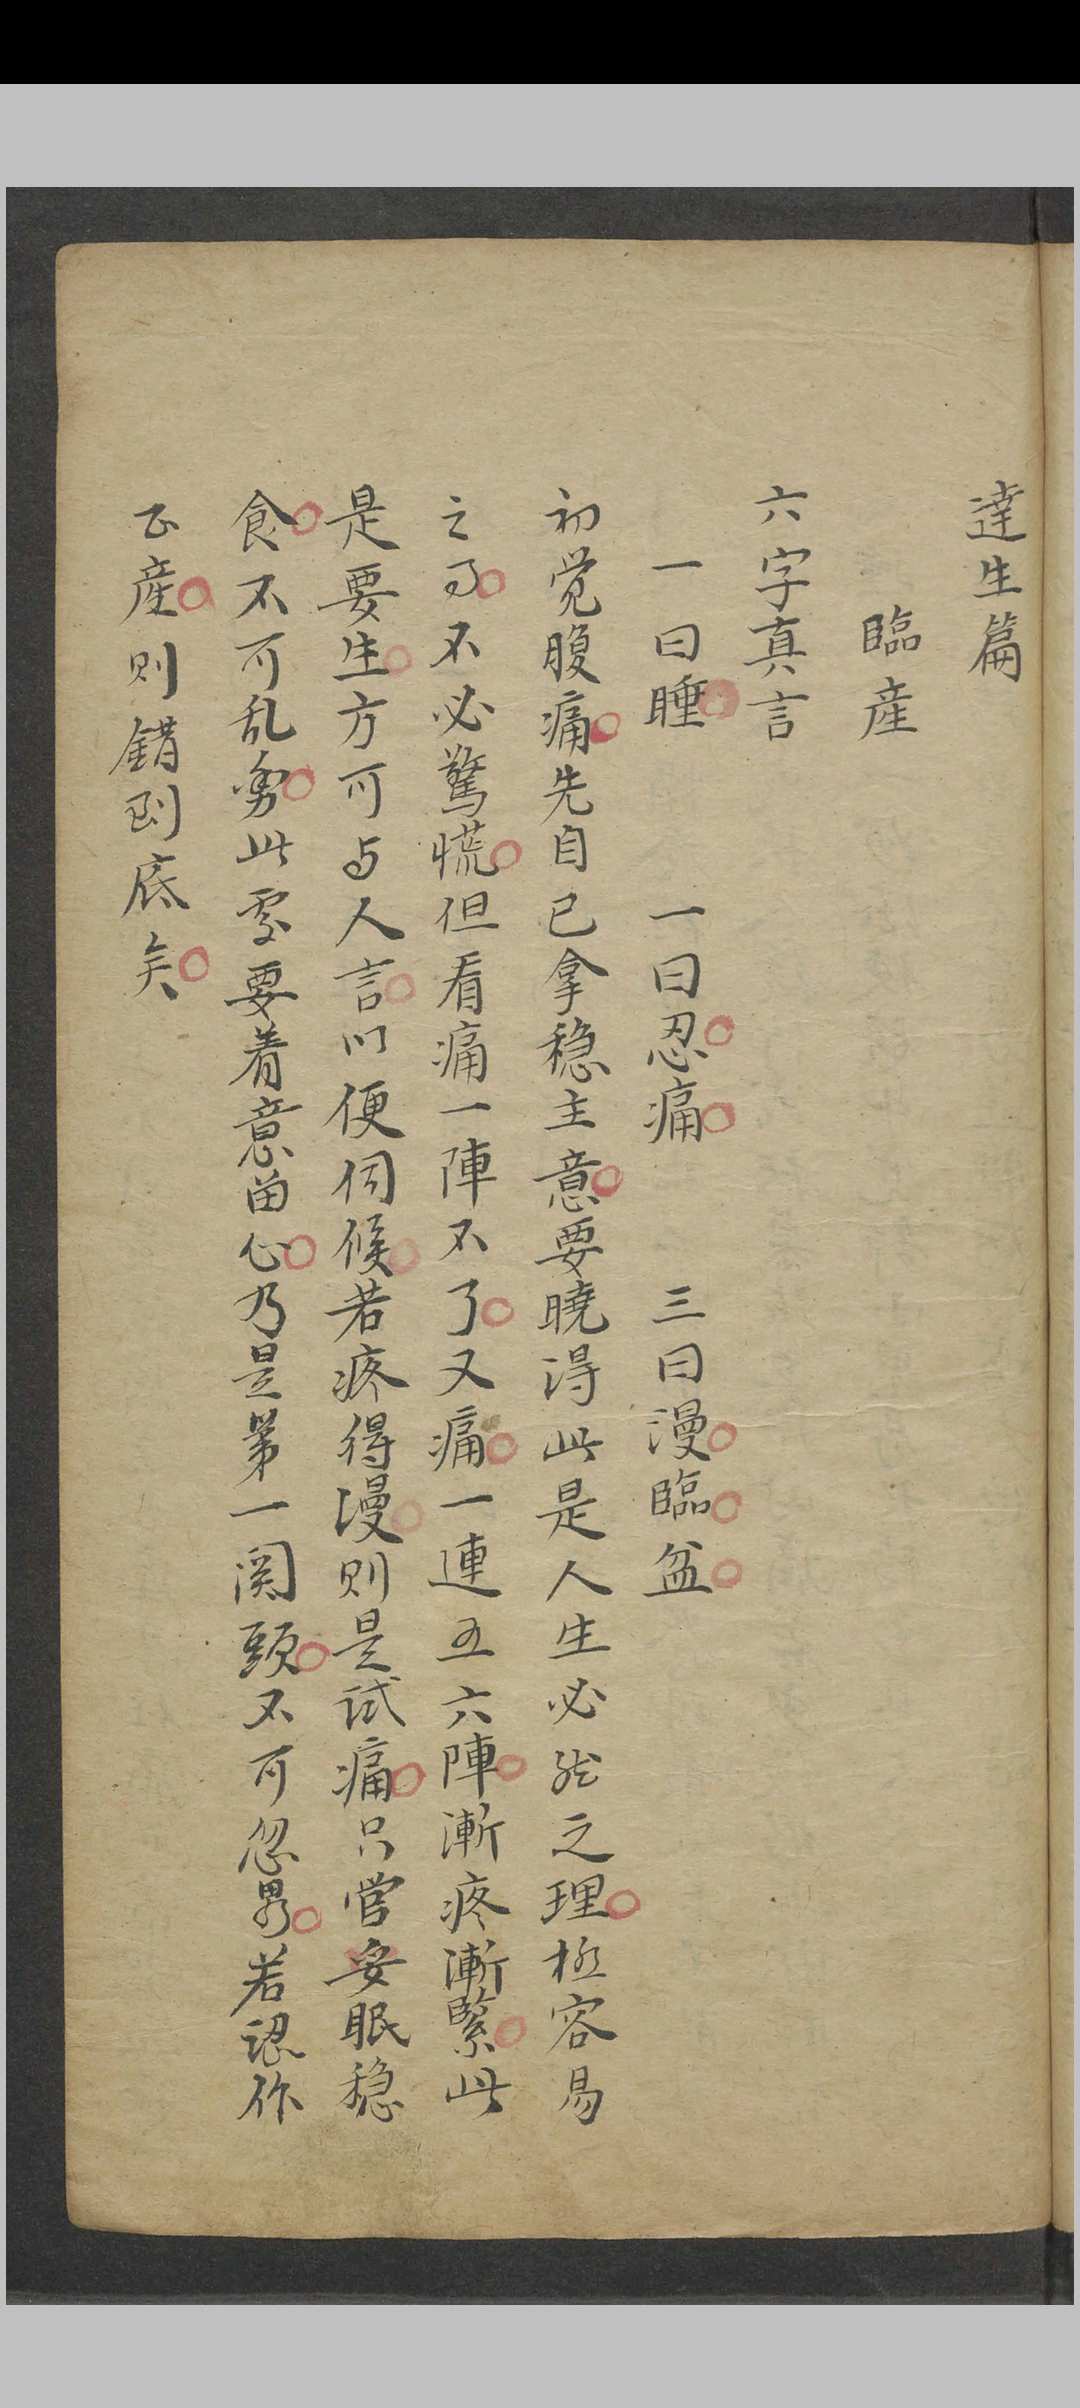 達生篇
臨産
六字真言
一曰睡 一曰忍痛 三曰漫臨盆
初觉腹痛先自已拿稳主意要曉淂此是人生必然之理极容易
之事不必驚慌但看痛一陣不了又痛一連五六陣漸疼漸緊此
是要生方可与人言以便伺候若疼得漫則是试痛只管安眠稳
食不可乱勇此處要着意畄心乃是第一関頭不可忽畧若認作
正産则錯到底矣